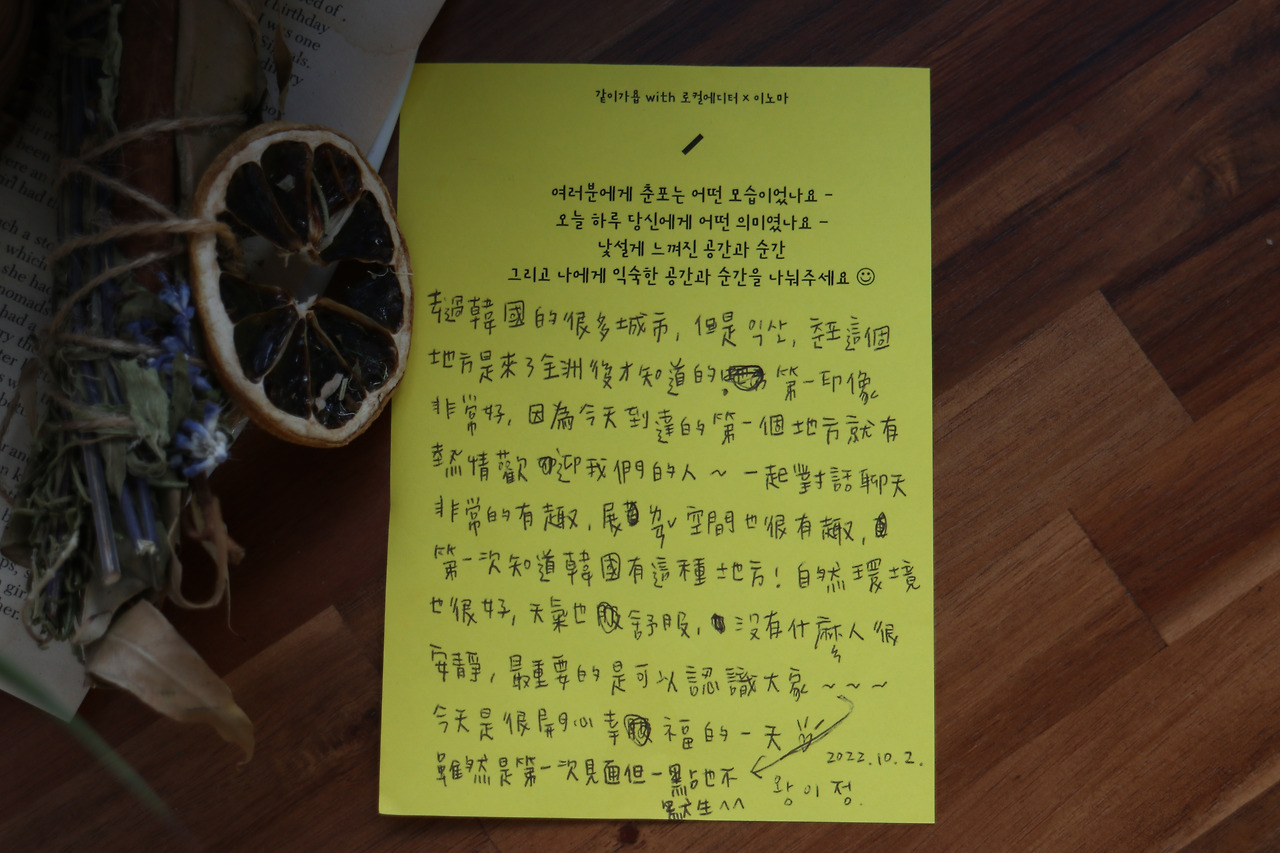 같이가욥 with 로컬에디터 x 이노마
여러분에게 춘포는 어떤 모습이었나요 -
오늘 하루 당신에게 어떤 의미였나요 -
낯설게 느껴진 공간과 순간
그리고 나에게 익숙한 공간과 순간을 나눠주세요 ☺
去過韓國的很多城市, 但是 익산, 춘포這個
地方是來了全洲後才知道的! 第一印像
非常好, 因為今天到達的第一個地方就有
熱情歡迎我們的人 ~ 一起對話聊天
非常的有趣, 展 空間也很有趣,
第一次知道韓國有這種地方! 自然環境
也很好, 天氣也舒服, 沒有什麼人很
安靜, 最重要的是可以認識大家 ~ ~ ~
今天是很開心幸福的一天
雖然是第一次見面但一點也不
默生 ^^
2022.10.2.
왕이정.
of
Birthday
was one
library
been
girl had
which
she had
nomads
had a